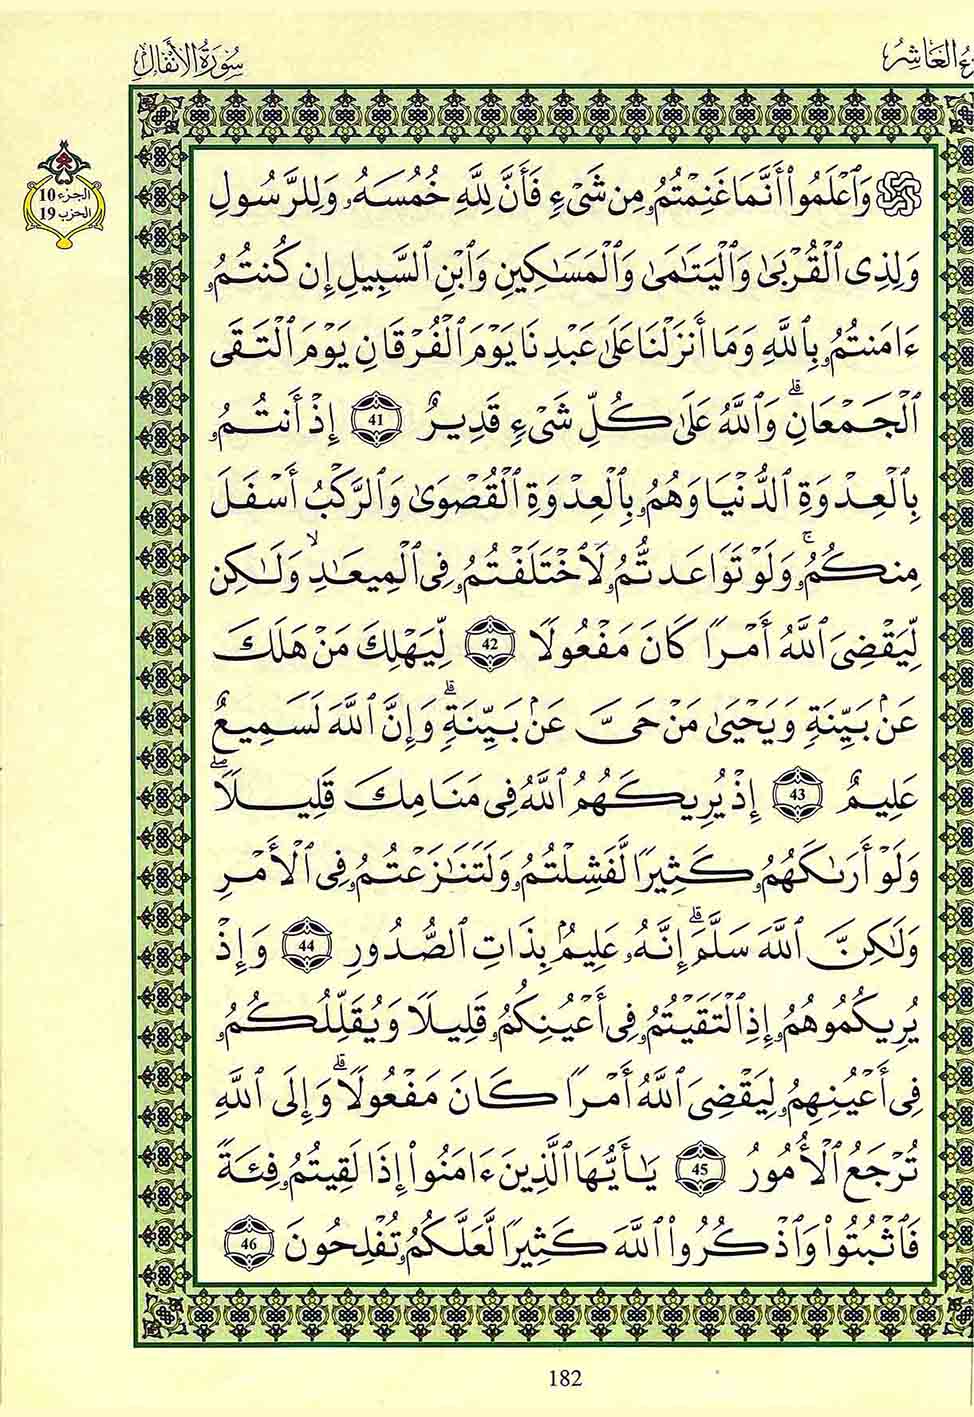 سُورَةُ الأَنفَالِ
العَاشِرُ
الجزء 10
الحزب 19
۞ وَٱعْلَمُوٓا۟ أَنَّمَا غَنِمْتُمُۥ مِن شَىْءٍ فَأَنَّ لِلَّهِ خُمُسَهُۥ وَلِلرَّسُولِ
وَلِذِى ٱلْقُرْبَىٰ وَٱلْيَتَٰمَىٰ وَٱلْمَسَٰكِينِ وَٱبْنِ ٱلسَّبِيلِ إِن كُنتُمُۥٓ
ءَامَنتُمُۥ بِٱللَّهِ وَمَآ أَنزَلْنَا عَلَىٰ عَبْدِنَا يَوْمَ ٱلْفُرْقَانِ يَوْمَ ٱلْتَقَى
ٱلْجَمْعَانِ ۗ وَٱللَّهُ عَلَىٰ كُلِّ شَىْءٍ قَدِيرٌ 41 إِذْ أَنتُمُۥ
بِٱلْعِدْوَةِ ٱلدُّنْيَا وَهُمُۥ بِٱلْعِدْوَةِ ٱلْقُصْوَىٰ وَٱلرَّكْبُ أَسْفَلَ
مِنكُمُۥ ۚ وَلَوْ تَوَاعَدتُّمُۥ لَٱخْتَلَفْتُمُۥ فِى ٱلْمِيعَٰدِ ۙ وَلَٰكِن
لِّيَقْضِىَ ٱللَّهُ أَمْرًا كَانَ مَفْعُولًا 42 لِّيَهْلِكَ مَنْ هَلَكَ
عَنۢ بَيِّنَةٍ وَيَحْيَىٰ مَنْ حَىَّ عَنۢ بَيِّنَةٍ ۗ وَإِنَّ ٱللَّهَ لَسَمِيعٌ
عَلِيمٌ 43 إِذْ يُرِيكَهُمُ ٱللَّهُ فِى مَنَامِكَ قَلِيلًا ۖ
وَلَوْ أَرَىٰكَهُمُۥ كَثِيرًا لَّفَشِلْتُمُۥ وَلَتَنَٰزَعْتُمُۥ فِى ٱلْأَمْرِ
وَلَٰكِنَّ ٱللَّهَ سَلَّمَ ۗ إِنَّهُۥ عَلِيمٌۢ بِذَاتِ ٱلصُّدُورِ 44 وَإِذْ
يُرِيكُمُوهُمُۥٓ إِذِ ٱلْتَقَيْتُمُۥ فِىٓ أَعْيُنِكُمُۥ قَلِيلًا وَيُقَلِّلُكُمُۥ
فِىٓ أَعْيُنِهِمُۥ لِيَقْضِىَ ٱللَّهُ أَمْرًا كَانَ مَفْعُولًا ۗ وَإِلَى ٱللَّهِ
تُرْجَعُ ٱلْأُمُورُ 45 يَٰٓأَيُّهَا ٱلَّذِينَ ءَامَنُوٓا۟ إِذَا لَقِيتُمُۥ فِئَةً
فَٱثْبُتُوا۟ وَٱذْكُرُوا۟ ٱللَّهَ كَثِيرًا لَّعَلَّكُمُۥ تُفْلِحُونَ 46
182